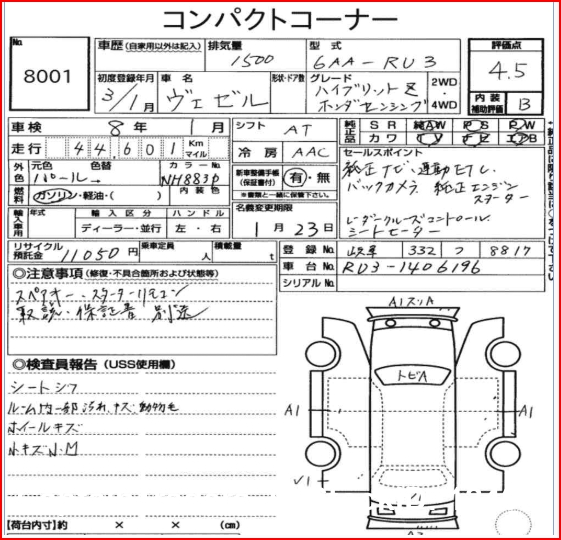 コンパクトコーナー
No. 8001
車歴 (自家用以外は記入)
排気量 1500
型式 6AA-RU3
評価点 4.5
内装補助評価 B
初度登録年月 3/1月
車名 ヴェゼル
形状・ドア数
グレード ハイブリッドZ ホンダセンシング
2WD・4WD
車検 8年 1月
シフト AT
純正品 SR 純AW PS PW
カワ TV ナビ エアB
走行 44,601 Km マイル
冷房 AAC
セールスポイント
純正ナビ・連動ETC
バックカメラ 純正エンジン
スターター
レーダークルーズコントロール
シートヒーター
外色 元色 パール 色替 → カラーNo. NH883P
新車整備手帳(保証書付) 有・無
※書類と一緒に保管下さい。
燃料 ガソリン・軽油・( ) 内装色
名義変更期限 1月23日
輸入車用 年式 輸入区分 ディーラー・並行 ハンドル 左・右
リサイクル預託金 11050円 乗車定員 人 積載量 t
登録No 岐阜 332 つ 8817
車台No RU3-1406196
シリアルNo
◎注意事項 (修復・不具合箇所および状態等)
スペアキー・スターターリモコン
取説・保証書 別送
◎検査員報告 (USS使用欄)
シートシワ
ルーム内一部汚れ、キズ、動物毛
ホイールキズ
小キズ小、M
【荷台内寸】約 × × (cm)
A1スリA
トビA
A1
A1
√1